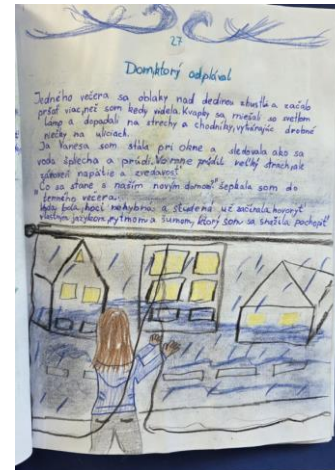 27
Dom,ktorý odplával
Jedného večera sa oblaky nad dedinou zhustli a začalo
pršať viac,než som kedy videla.Kvapky sa miešali so svetlom
lámp a dopadali na strechy a chodníky,vytvárajúc drobné
riečky na uliciach.
Ja Vanesa som stála pri okne a sledovala ako sa
voda šplecha a prúdi.Vo mne prúdil veľký strach,ale
zároveň napätie a zvedavosť.
"Čo sa stane s naším novým domom?" šepkala som do
temného večera.
bola, hoci nehybná a studená už začínala hovoriť
vlastným jazykom,rytmom a šumom, ktorý som sa snažila pochopiť